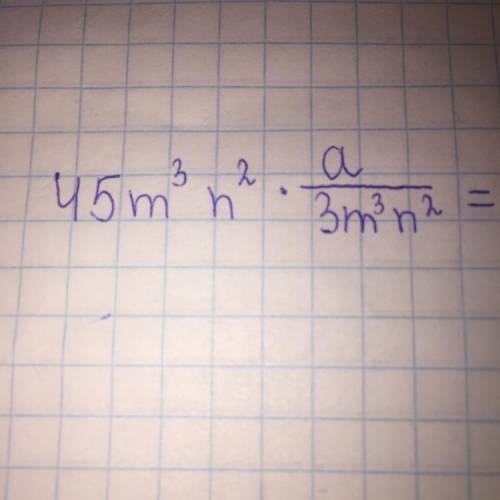 45m³ n² · a/3m³n² =